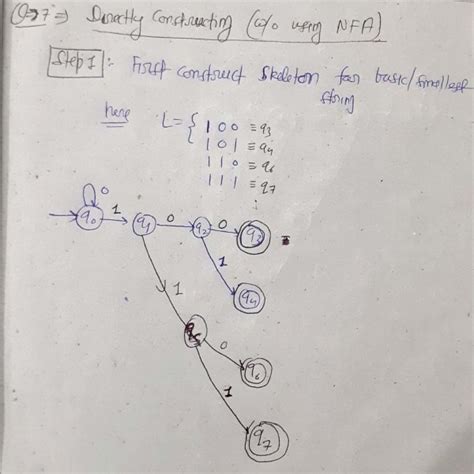 Q→7 ⇒ Directly Constructing (w/o using NFA)
Step 1: First construct skeleton for basic/smallest
string
here L = { 1 0 0 ≡ q3
1 0 1 ≡ q4
1 1 0 ≡ q6
1 1 1 ≡ q7
⋮
0
q0 1 q1 0 q2 0 q3
1
1 q4
q5 0
q6
1
q7